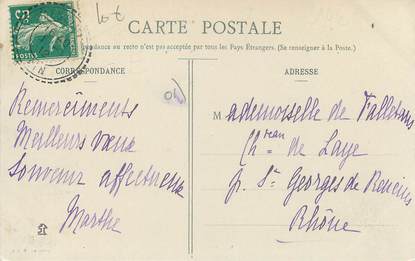 10 €
CARTE POSTALE
pondance au recto n'est pas acceptée par tous les Pays Étrangers. (Se renseigner à la Poste.)
CORRESPONDANCE
ADRESSE
Remerciments
Meilleurs vœux
Souvenir affectueux
Marthe
Mademoiselle de Valletans
Ch.eau de Laye
p. St Georges de Reneins
Rhône